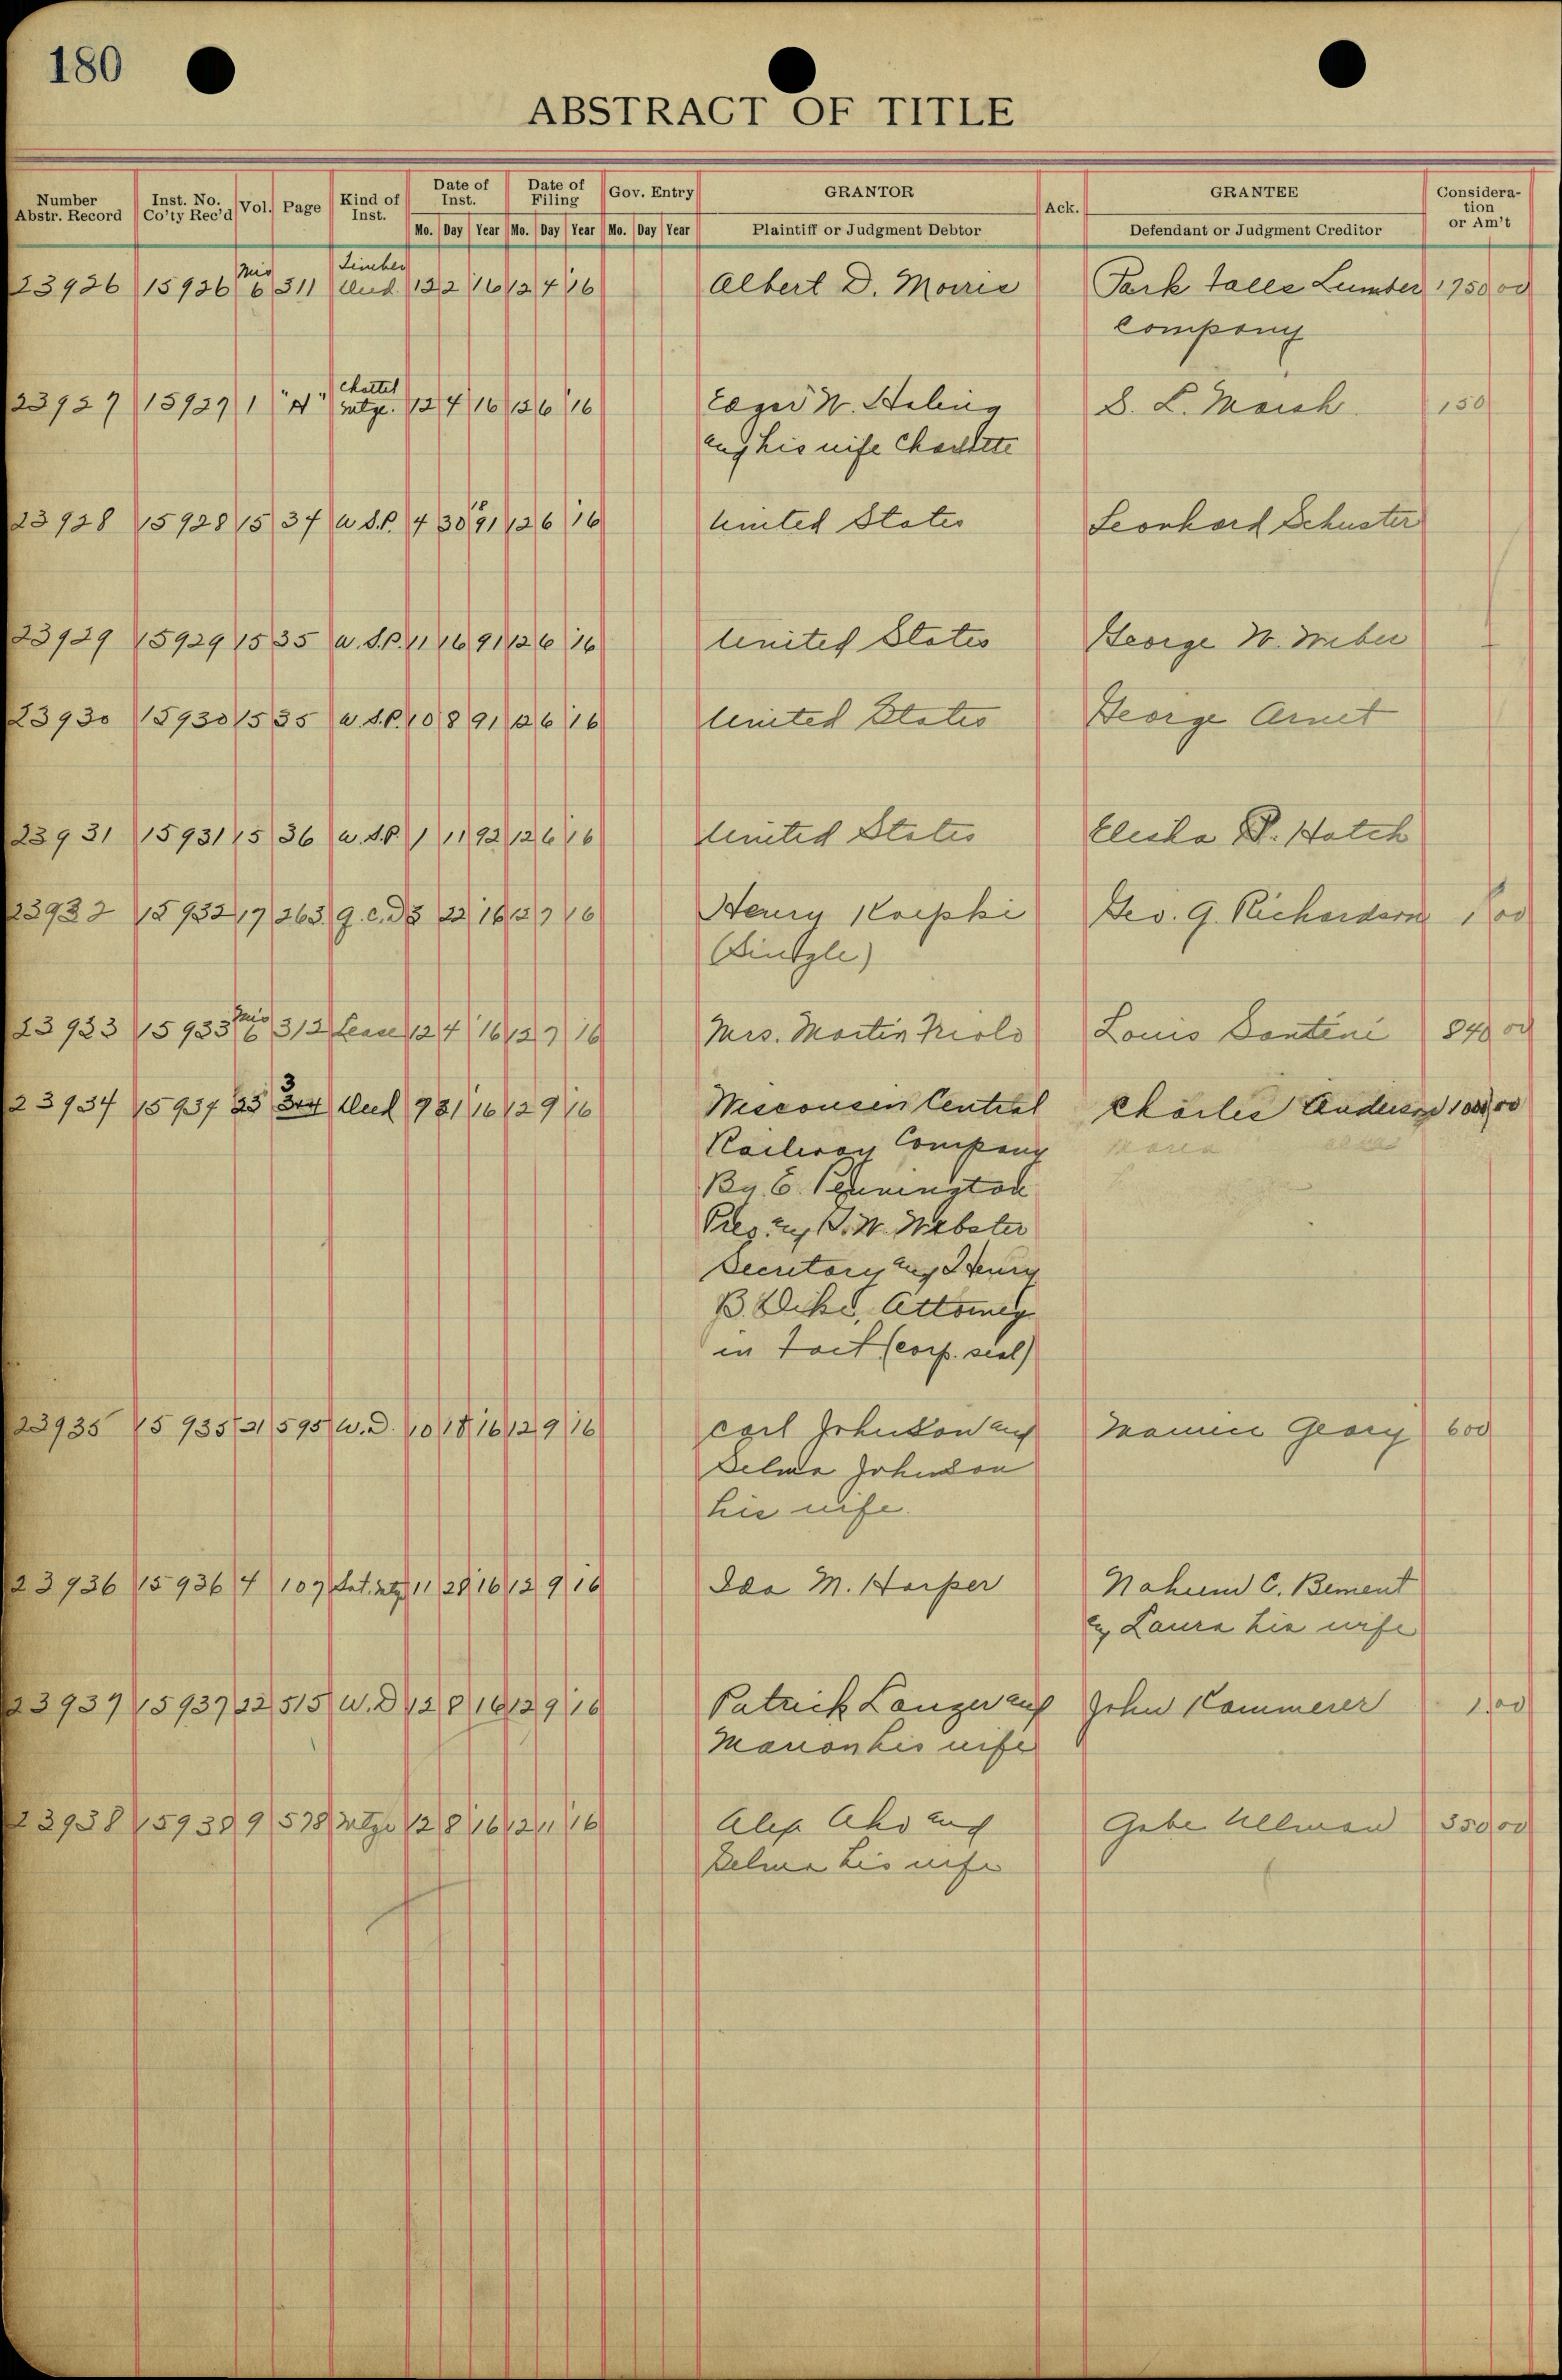 180
ABSTRACT OF TITLE
Number Abstr. Record | Inst. No. Co'ty Rec'd | Vol. | Page | Kind of Inst. | Date of Inst. | Date of Filing | Gov. Entry | GRANTOR | Ack. | GRANTEE | Consideration or Am't
Mo. Day Year Mo. Day Year Mo. Day Year Plaintiff or Judgment Debtor Defendant or Judgment Creditor
Timber
23926 15926 Mis 6 311 Deed 12 2 16 12 4 16 Albert D. Morris Park Falls Lumber 1750 00
Company
Chattel
23927 15927 1 "A" Mtge. 12 4 16 12 6 16 W. S. L. Marsh 150
and his wife Charlotte
18
23928 15928 15 34 U.S.P. 4 30 91 12 6 16 United States Leonhard Schuster
23929 15929 15 35 U.S.P. 11 16 91 12 6 16 United States George W. Weber
23930 15930 15 35 U.S.P. 10 8 91 12 6 16 United States George Arnet
23931 15931 15 36 U.S.P. 1 11 92 12 6 16 United States Elisha Hatch
23932 15932 17 263 Q.C.D. 3 22 16 12 7 16 Henry Geo. G. Richardson 1 00
(Single)
23933 15933 Mis 6 312 Lease 12 4 16 12 7 16 Mrs. Martin Louis Santini 840 00
3
23934 15934 23 Deed 9 21 16 12 9 16 Wisconsin Central Charles Anderson 1000 00
Railway Company
By E. Pennington
Pres. and G. W. Webster
Secretary and Henry
B. Dike, Attorney
in Fact (corp. seal)
23935 15935 21 595 W.D. 10 18 16 12 9 16 Carl Johnson and Mamie Geary 600
Selma Johnson
his wife.
23936 15936 4 107 Sat. Mtg 11 28 16 12 9 16 Ida M. Harper Nahum C. Bement
and Laura his wife
23937 15937 22 515 W.D 12 8 16 12 9 16 Patrick Langer and John Kammerer 1 00
Marion his wife
23938 15938 9 578 Mtge 12 8 16 12 11 16 Alex Aho and Gabe Ullman 350 00
Selma his wife